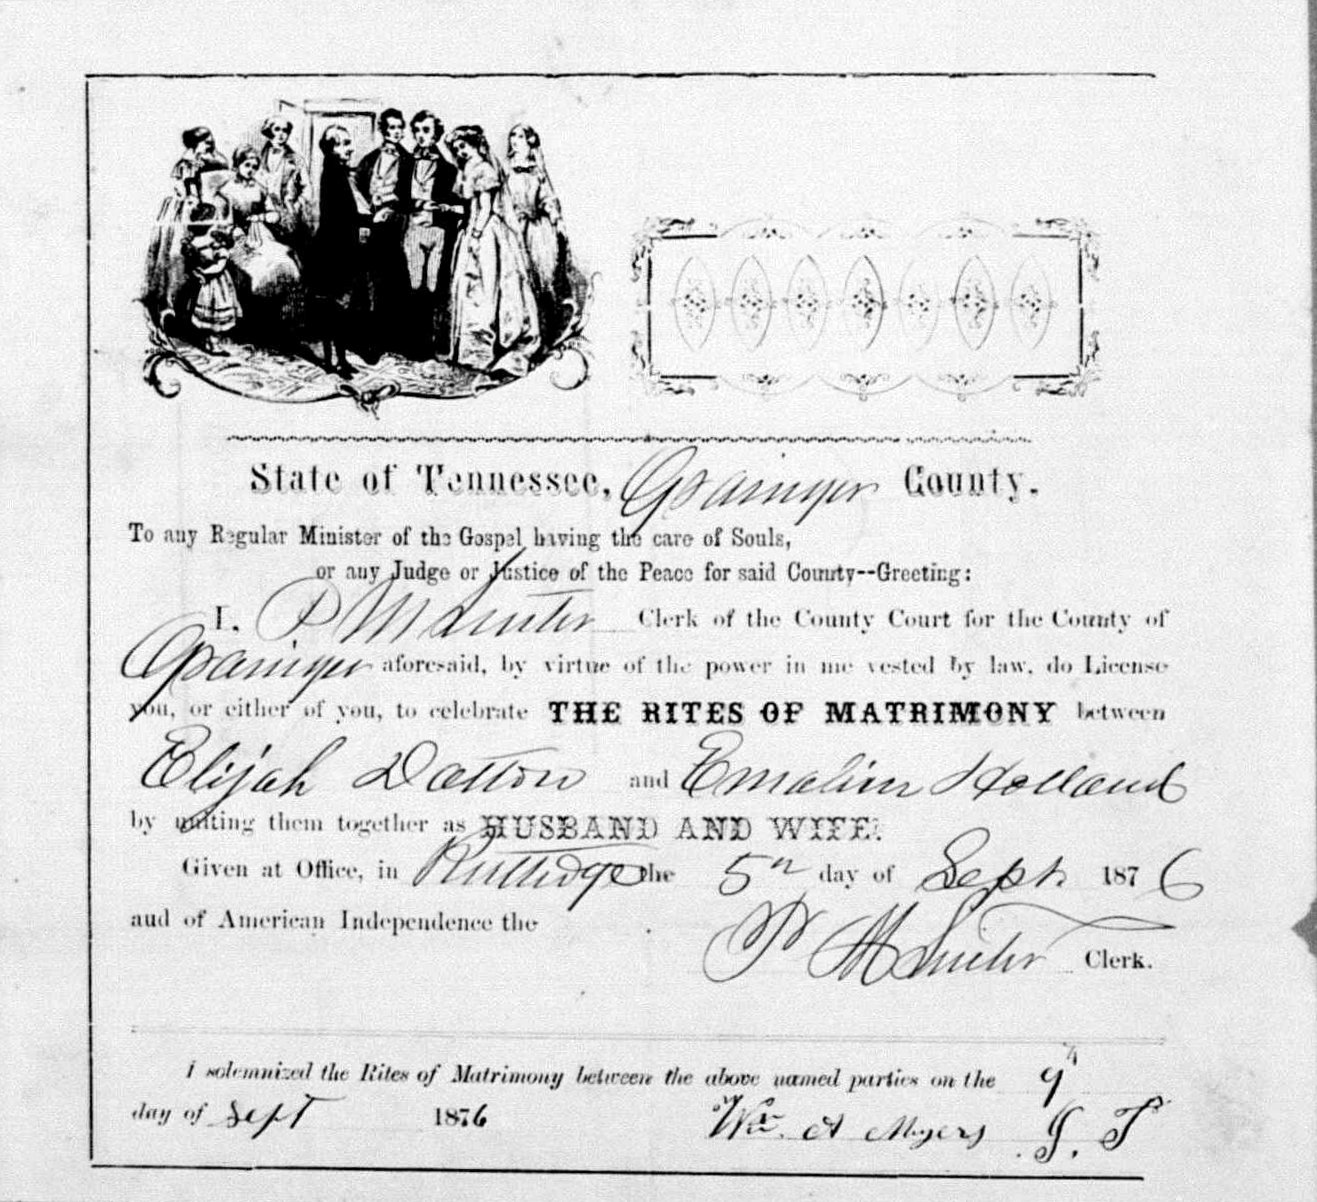 State of Tennessee, Grainger County.
To any Regular Minister of the Gospel having the care of Souls,
or any Judge or Justice of the Peace for said County--Greeting:
I, P M Senter Clerk of the County Court for the County of
Grainger aforesaid, by virtue of the power in me vested by law, do License
you, or either of you, to celebrate THE RITES OF MATRIMONY between
Elijah Dalton and Emaline Holland
by uniting them together as HUSBAND AND WIFE.
Given at Office, in Rutledge the 5th day of Sept. 1876
and of American Independence the
P M Senter Clerk.
I solemnized the Rites of Matrimony between the above named parties on the 9th
day of Sept 1876 Wm. A Myers J. P